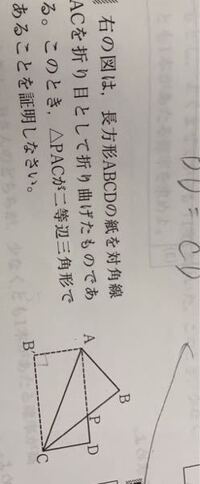 右の図は，長方形ABCDの紙を対角線
ACを折り目として折り曲げたものであ
る。このとき，△PACが二等辺三角形で
あることを証明しなさい。
A
B
P
D
B′
C